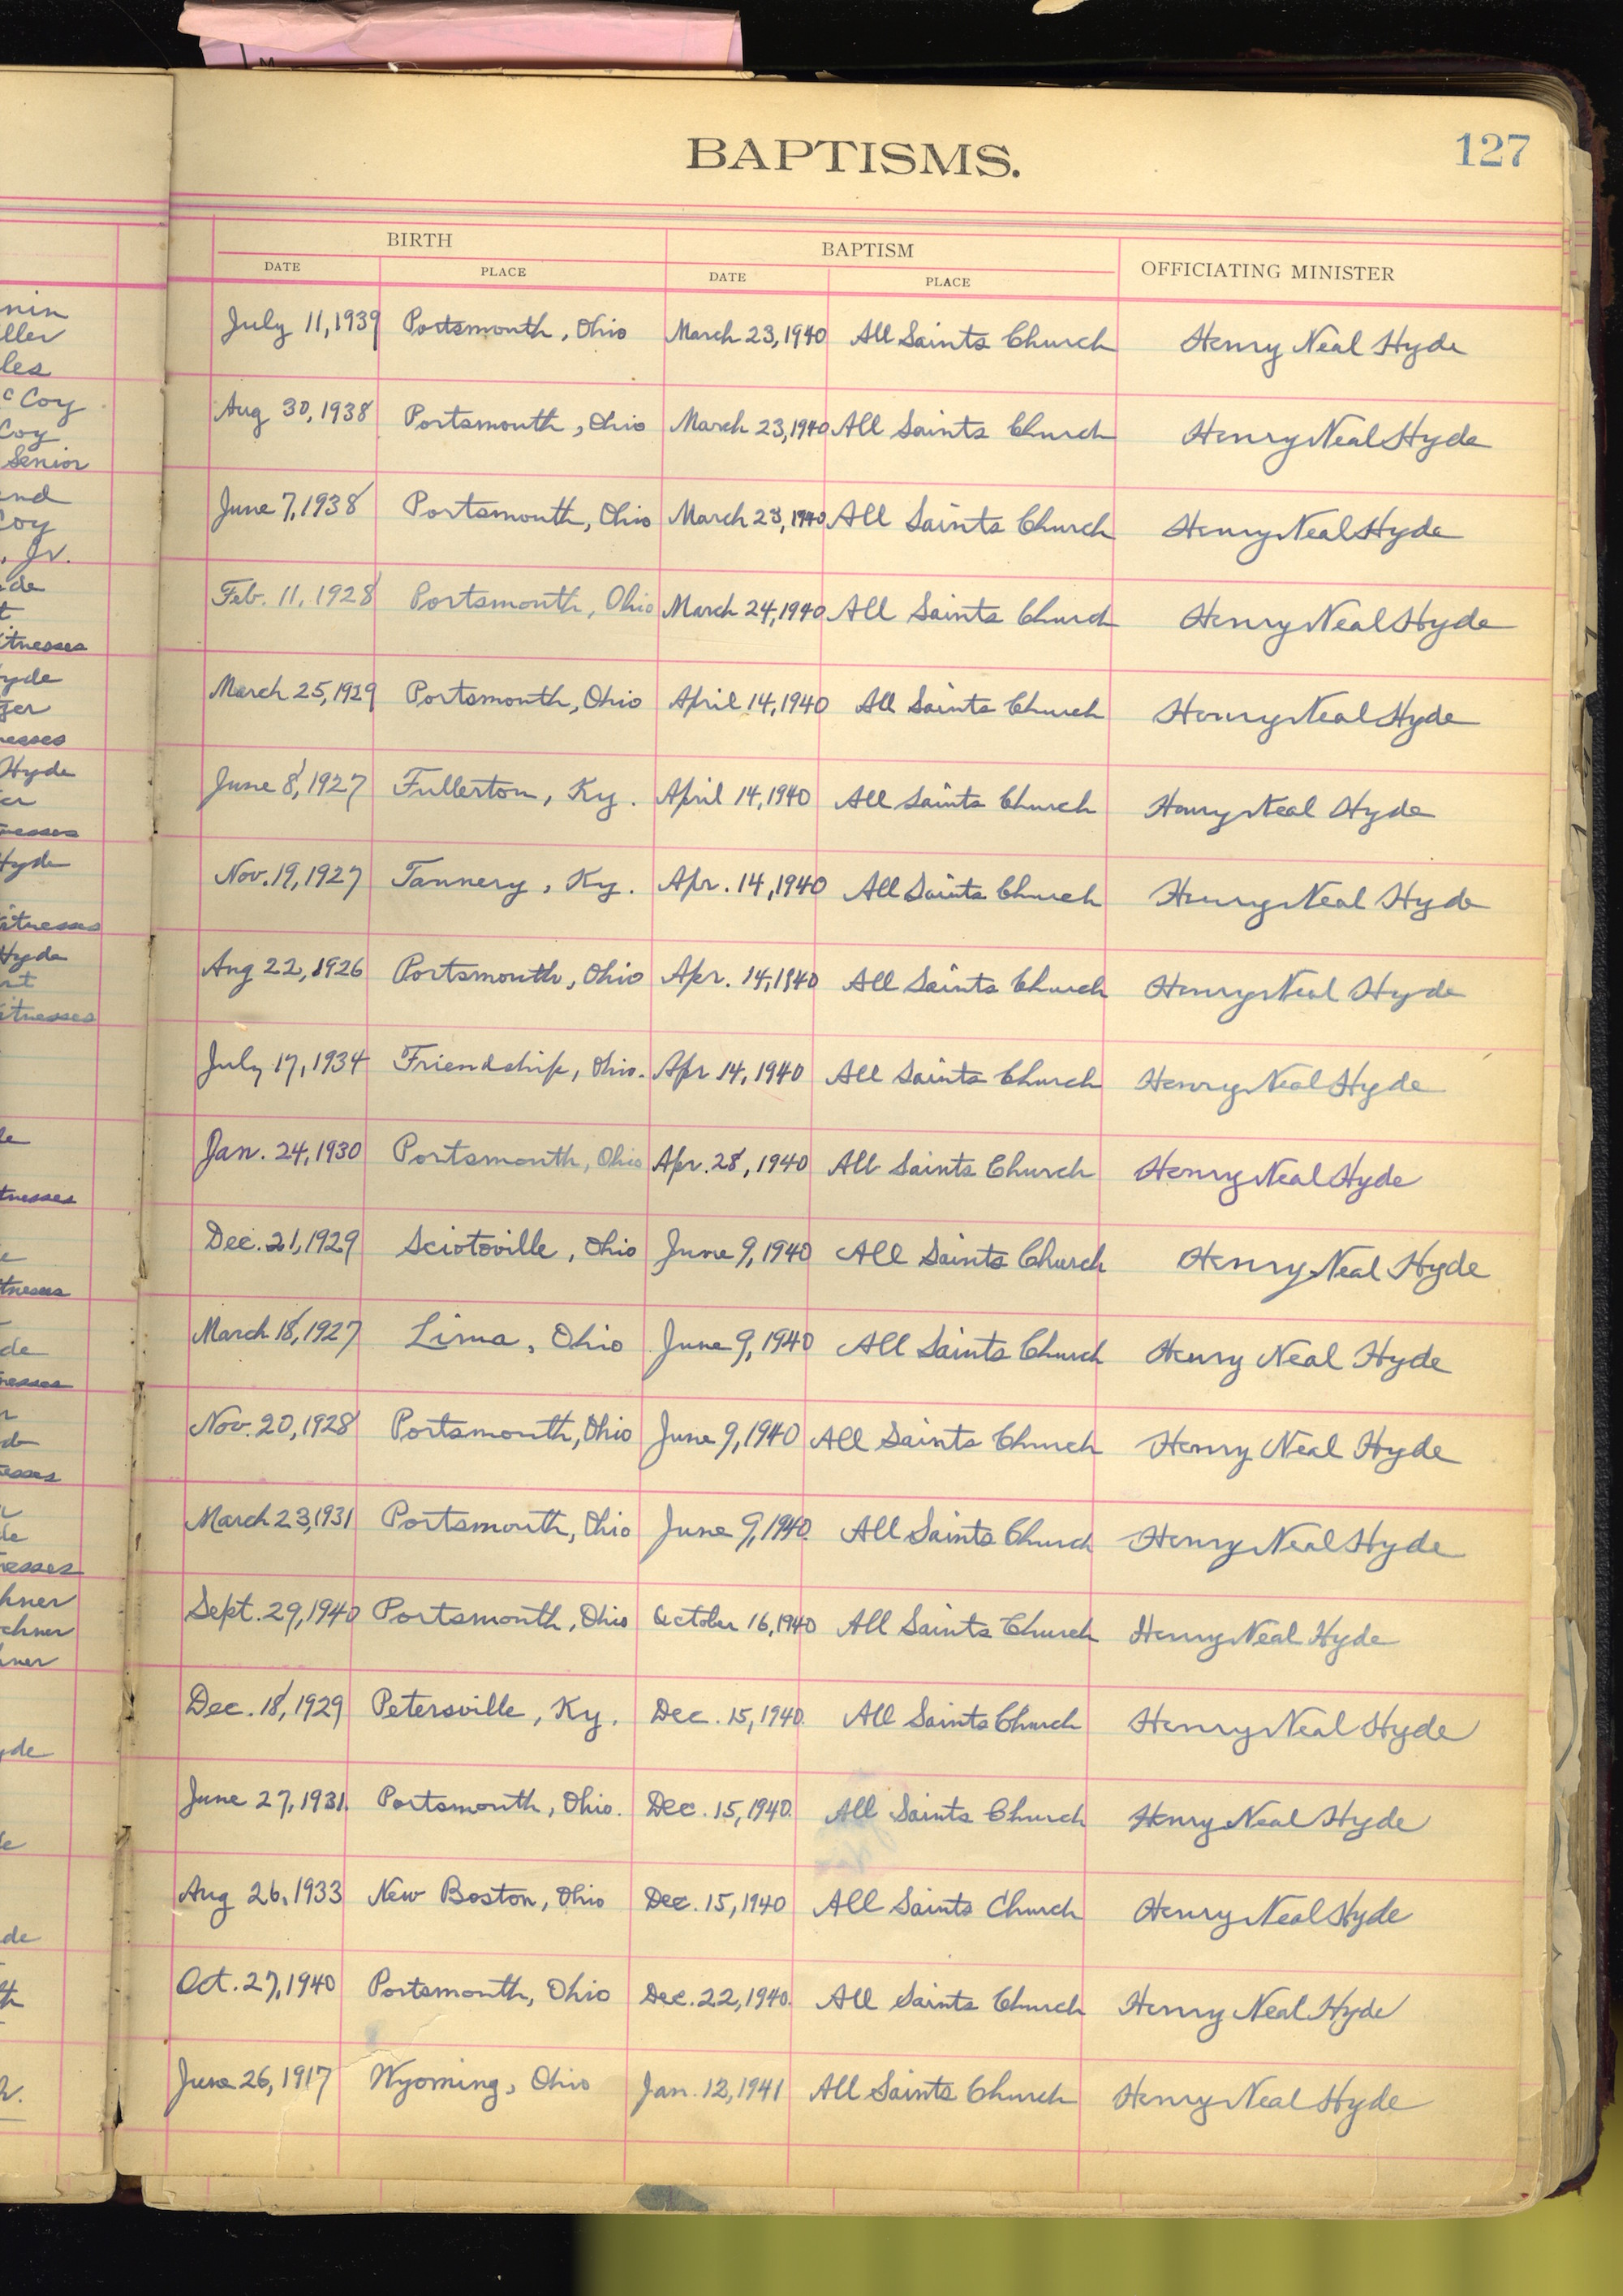 BAPTISMS.
127
BIRTH
BAPTISM
OFFICIATING MINISTER
DATE PLACE DATE PLACE
July 11, 1939 Portsmouth, Ohio March 23, 1940 All Saints Church Henry Neal Hyde
Aug 30, 1938 Portsmouth, Ohio March 23, 1940 All Saints Church Henry Neal Hyde
June 7, 1938 Portsmouth, Ohio March 23, 1940 All Saints Church Henry Neal Hyde
Feb. 11, 1928 Portsmouth, Ohio March 24, 1940 All Saints Church Henry Neal Hyde
March 25, 1929 Portsmouth, Ohio April 14, 1940 All Saints Church Henry Neal Hyde
June 8, 1927 Fullerton, Ky. April 14, 1940 All Saints Church Henry Neal Hyde
Nov. 19, 1927 Tannery, Ky. Apr. 14, 1940 All Saints Church Henry Neal Hyde
Aug 22, 1926 Portsmouth, Ohio Apr. 14, 1940 All Saints Church Henry Neal Hyde
July 17, 1934 Friendship, Ohio. Apr 14, 1940 All Saints Church Henry Neal Hyde
Jan. 24, 1930 Portsmouth, Ohio Apr. 28, 1940 All Saints Church Henry Neal Hyde
Dec. 21, 1929 Sciotoville, Ohio June 9, 1940 All Saints Church Henry Neal Hyde
March 18, 1927 Lima, Ohio June 9, 1940 All Saints Church Henry Neal Hyde
Nov. 20, 1928 Portsmouth, Ohio June 9, 1940 All Saints Church Henry Neal Hyde
March 23, 1931 Portsmouth, Ohio June 9, 1940. All Saints Church Henry Neal Hyde
Sept. 29, 1940 Portsmouth, Ohio October 16, 1940 All Saints Church Henry Neal Hyde
Dec. 18, 1929 Petersville, Ky. Dec. 15, 1940. All Saints Church Henry Neal Hyde
June 27, 1931. Portsmouth, Ohio. Dec. 15, 1940. All Saints Church Henry Neal Hyde
Aug 26, 1933 New Boston, Ohio Dec. 15, 1940 All Saints Church Henry Neal Hyde
Oct. 27, 1940 Portsmouth, Ohio Dec. 22, 1940. All Saints Church Henry Neal Hyde
June 26, 1917 Wyoming, Ohio Jan. 12, 1941 All Saints Church Henry Neal Hyde